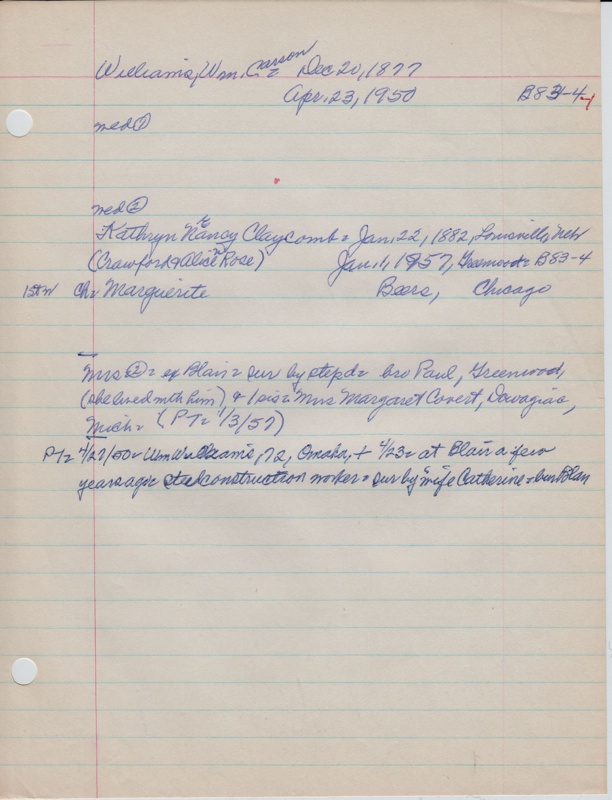 Williams, Wm. Carson = Dec 20, 1877
Apr. 23, 1950 B83-4
med ①
med ②
Kathryn Nancy Claycomb = Jan. 22, 1882, Louisville, Neb
(Crawford & Alice Rose) Jan. 1, 1957, Greenwood = B83-4
1st w Ch = Marguerite Beers, Chicago
Mrs ② = of Blair = sur by stepd = bro Paul, Greenwood,
(she lived with him) & 1 sis = Mrs Margaret Covert, Dowagiac,
Mich = (PT = 1/3/57)
PT = 4/27/50 = Wm Williams, 72, Omaha, + 4/23 = at Blair a few
years ago = steel construction worker = sur by wife Catherine = bur Blair